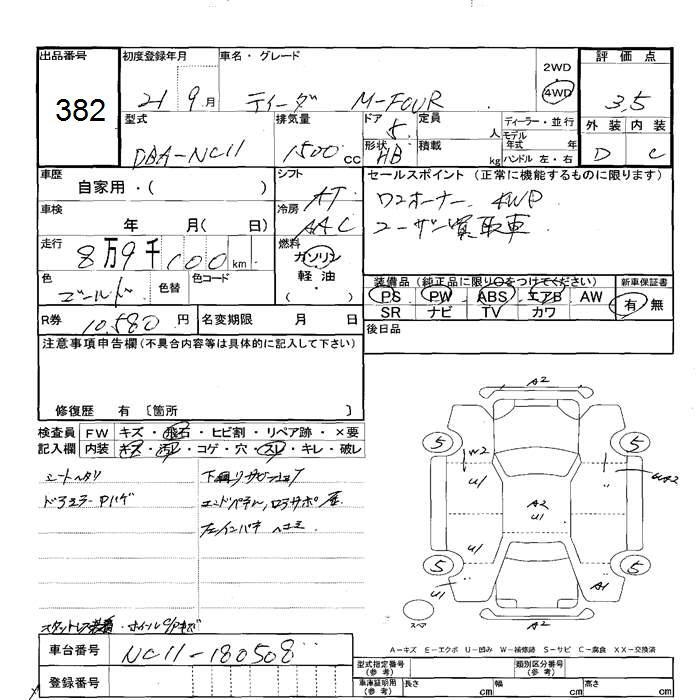 出品番号
382
初度登録年月
21 9月
車名・グレード
ティーダ M-FOUR
2WD
4WD
評価点
3.5
外装 内装
D C
型式
DBA-NC11
排気量
1500cc
ドア
5
形状
HB
定員
人
積載
kg
ディーラー・並行
モデル年式 年
ハンドル 左・右
車歴
自家用・( )
シフト
AT
セールスポイント (正常に機能するものに限ります)
ワンオーナー 4WD
ユーザー買取車
車検
年 月( 日)
冷房
AAC
走行
8万9千100km
燃料
ガソリン
軽油
( )
色
ゴールド
色替
色コード
装備品 (純正品に限り○をつけてください)
PS PW ABS エアB AW
SR ナビ TV カワ
新車保証書
有 無
R券
10,580円
名変期限 月 日
後日品
注意事項申告欄(不具合内容等は具体的に記入して下さい)
修復歴 有 〔箇所 〕
検査員記入欄
FW キズ・飛石・ヒビ割・リペア跡・×要
内装 キズ・汚れ・コゲ・穴・スレ・キレ・破レ
シートヘタリ
下廻りサビ
エンドパネル
ヘコミ
スタットレス装着・ホイール
A2
5 5
W2
U1
A2
U1
U1
5 5
U1
A1
A2
スペア
A-キズ E-エクボ U-凹み W-補修跡 S-サビ C-腐食 XX-交換済
車台番号
NC11-180508
登録番号
型式指定番号(参考)
類別区分番号(参考)
車庫証明用(参考)
長さ cm 幅 cm 高さ cm